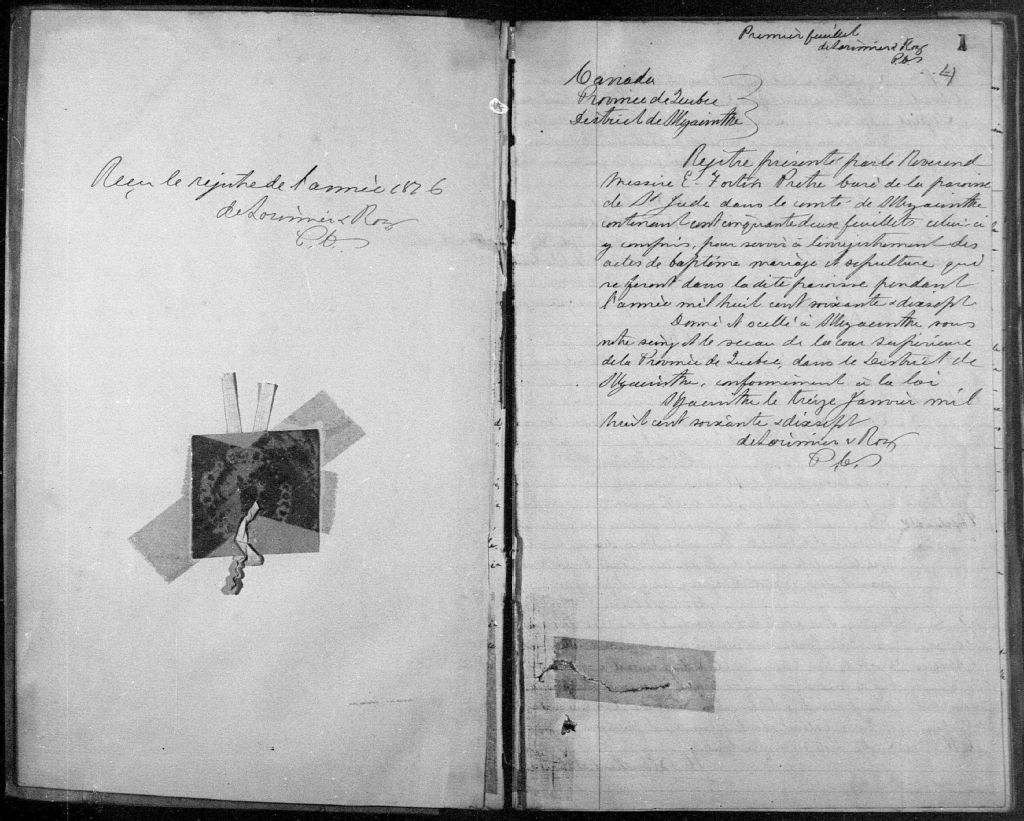 Reçu le registre de l'année 1876
de Lorimier & Roy
P.C.S
Premier feuillet
de Lorimier & Roy
P.C.S
1
Canada
Province de Quebec
District de St Hyacinthe
Registre présenté par le Reverend
Messire E. Fortin Prêtre Curé de la paroisse
de St Jude dans le comté de St Hyacinthe
contenant cent cinquante deux feuillets celui-ci
y compris, pour servir à l'enregistrement des
actes de baptême mariage et sepulture qui
se feront dans la dite paroisse pendant
l'année mil huit cent soixante & dixsept
Donné et scellé à St Hyacinthe sous
notre seing et le sceau de la cour supérieure
de la Province de Quebec, dans le District de
St Hyacinthe, conformément à la loi
St Hyacinthe le treize Janvier mil
huit cent soixante & dixsept
de Lorimier & Roy
P.C.S